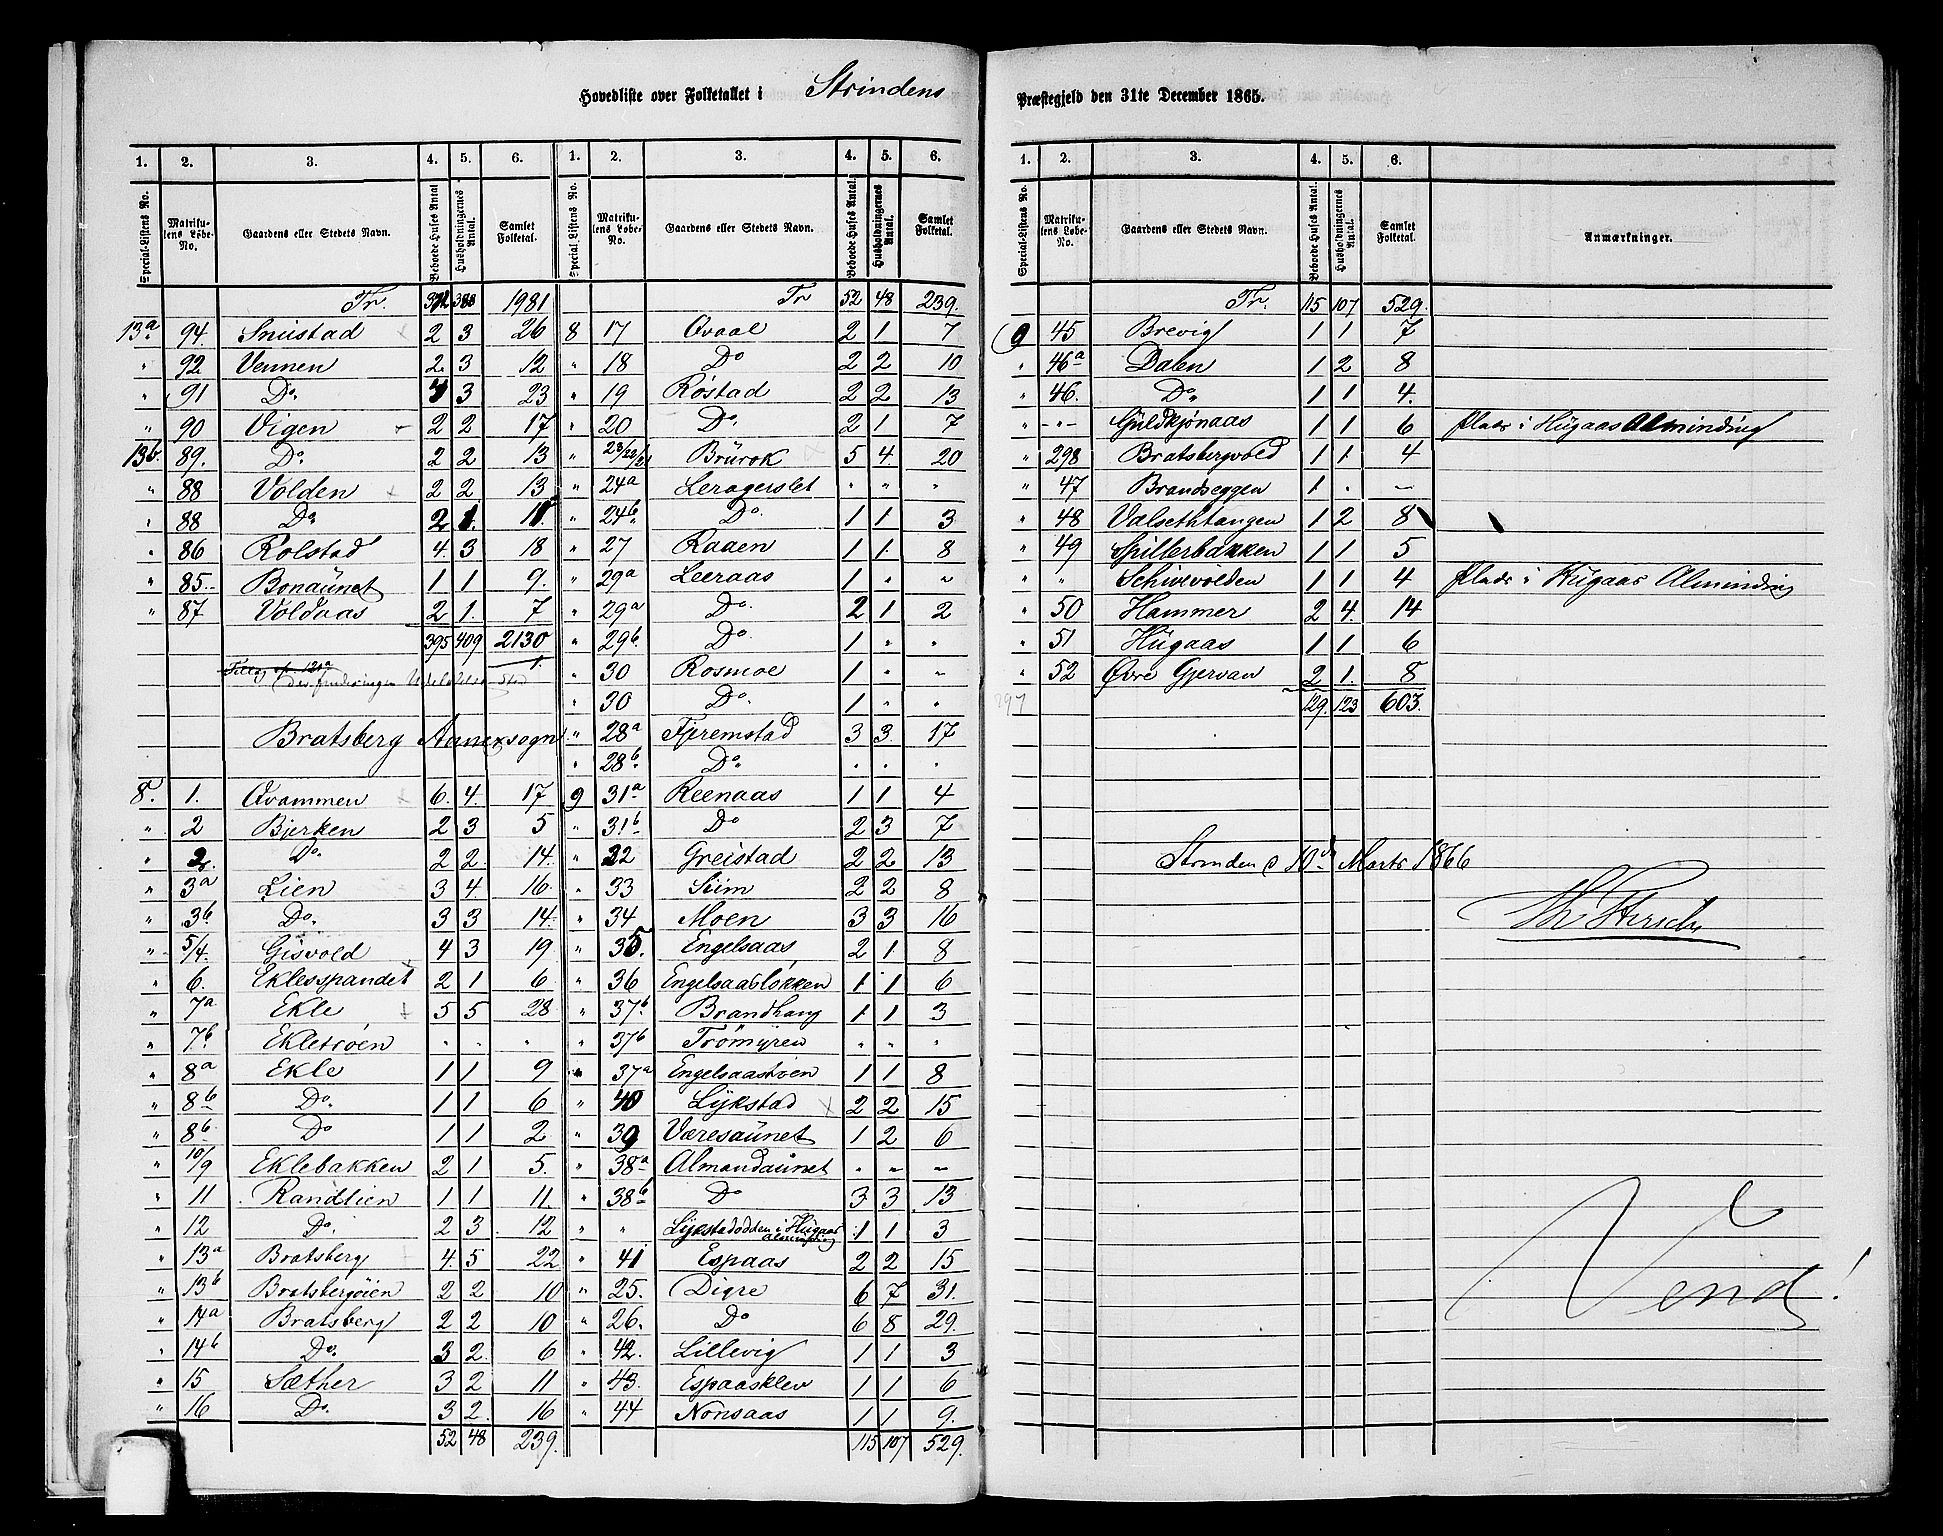 Hovedliste over Folketallet i Strindens
1. 2. 3. 4. 5. 6. 1. 2. 3. 4. 5. 6.
Special-Listens No. Matrikulens Løbe-No. Gaardens eller Stedets Navn. Beboede Huses Antal Husholdningernes Antal. Samlet Folketal. Special-Listens No. Matrikulens Løbe-No. Gaardens eller Stedets Navn. Beboede Huses Antal. Husholdningernes Antal. Samlet Folketal.
Tr. 388 1981
13a 94 Snustad 2 3 26
" 92 Vennen 2 3 12
" 91 Do. 3 23
" 90 Vigen 2 2 17
13b. 89. Do. 2 2 13
" 88 Volden 2 2 13
" 88 Do. 2 1.
" 86 Rolstad 4. 3 18
" 85. Bonaünet 1 1 9.
" 87 Voldaas 2 1. 7
395 409 2130
1.
Bratsberg Annexsogn
8. 1. Qvammen 6. 4. 17
" 2 Bjerken 2 3 5
" 2. Do. 2 2 14.
" 3a Lien 3 4 16.
" 3b Do. 3 3 14.
" 5/4. Gisvold 4 3 19
" 6. Eklesspandet 2 1 6
" 7a Ekle 5 5 28
" 7b Ekletrøen " " "
" 8a Ekle 1 1 9
" 8b Do. 1 1 6
" 8b. Do 1 1 2
" 10/9 Eklebakken 2 1 5.
" 11 Randlien 1 1 11.
" 12 Do. 2 3 12
" 13a Bratsberg 4. 5 22
" 13b Bratsbergøien 2 2 10
" 14a Bratsberg 2 2 10
" 14b Do. 3 2 6
" 15 Sæther 3 2 11
" 16 Do. 3 2 16
52 48 239.
Tr 52 48 239.
8 17 Qvaal 2 1 7
" 18 Do 2 2 10
" 19 Røstad 2 2 13
" 20 Do. 2 1 7
" 23/22/21 Brürok 5 4. 20
" 24a Leragerslet " " "
" 24b. Do. 1 1 3
" 27 Raaen 1 1. 8
" 29a Leeraas 1 " "
" 29a Do. 2 1 2
" 29b Do. 1 " "
" 30 Rosmoe 1 " "
" 30 Do. 1 " "
" 28a Fjeremstad 3 3. 17
28b. Do. " " "
9 31a Reenaas 1 1 4
" 31b Do 2 3 7
" 32 Greistad 2 2 13
" 33 Siim 2 2 8
" 34 Moen 3 3 16
" 35. Engelsaas 2 1 8
" 36 Engelsaasløkken 1 1 6
" 37b. Brandhaug 1 1 3
" 37b Trømyren " " "
" 37a Engelsaastrøen 1 1 8
" 40 Lykstad 2 2 15
" 39 Væresaünet 1 2 6
" 38a Almandaünet " " "
" 38b Do 3 3 13
" " Lykstadodden i Hügaas Alminding 1 1 3
" 41 Espaas 2 2 15
" 25. Digre 6 7 31.
" 26. Do 6 8 29.
" 42. Lillevig 1 1 3
" 43. Espaasklev 1 1 6
" 44 Nonsaas 1 1 9.
115 107 529.
Præstegjeld den 31te December 1865.
1. 2. 3. 4. 5. 6.
Special-Listens No. Matrikulens Løbe-No. Gaardens eller Stedets Navn. Beboede Huses Antal. Husholdningernes Antal. Samlet Folketal. Anmærkninger.
Tr. 115 107 529.
9 45 Brevig 1 1 7
" 46a Dalen 1 2 8
" 46. Do 1 1 4.
" -"- Guldkjønaas 1 1 6 plads i Hügaas Alminding
" 298 Bratsbergvold 1 1. 4
" 47 Brandseggen 1 . –
" 48 Valsethtangen 1 2 8
" 49 Spillerbakken 1 1 5
" " Schivevolden 1 1 4 plads i Hügaas Alminding
" 50 Hammer 2 4. 14
" 51 Hügaas 1 1 6
" 52 Øvre Gjervan 2 1. 8
297 129. 123 603.
Strinden d 10de Marts 1866
Vend!